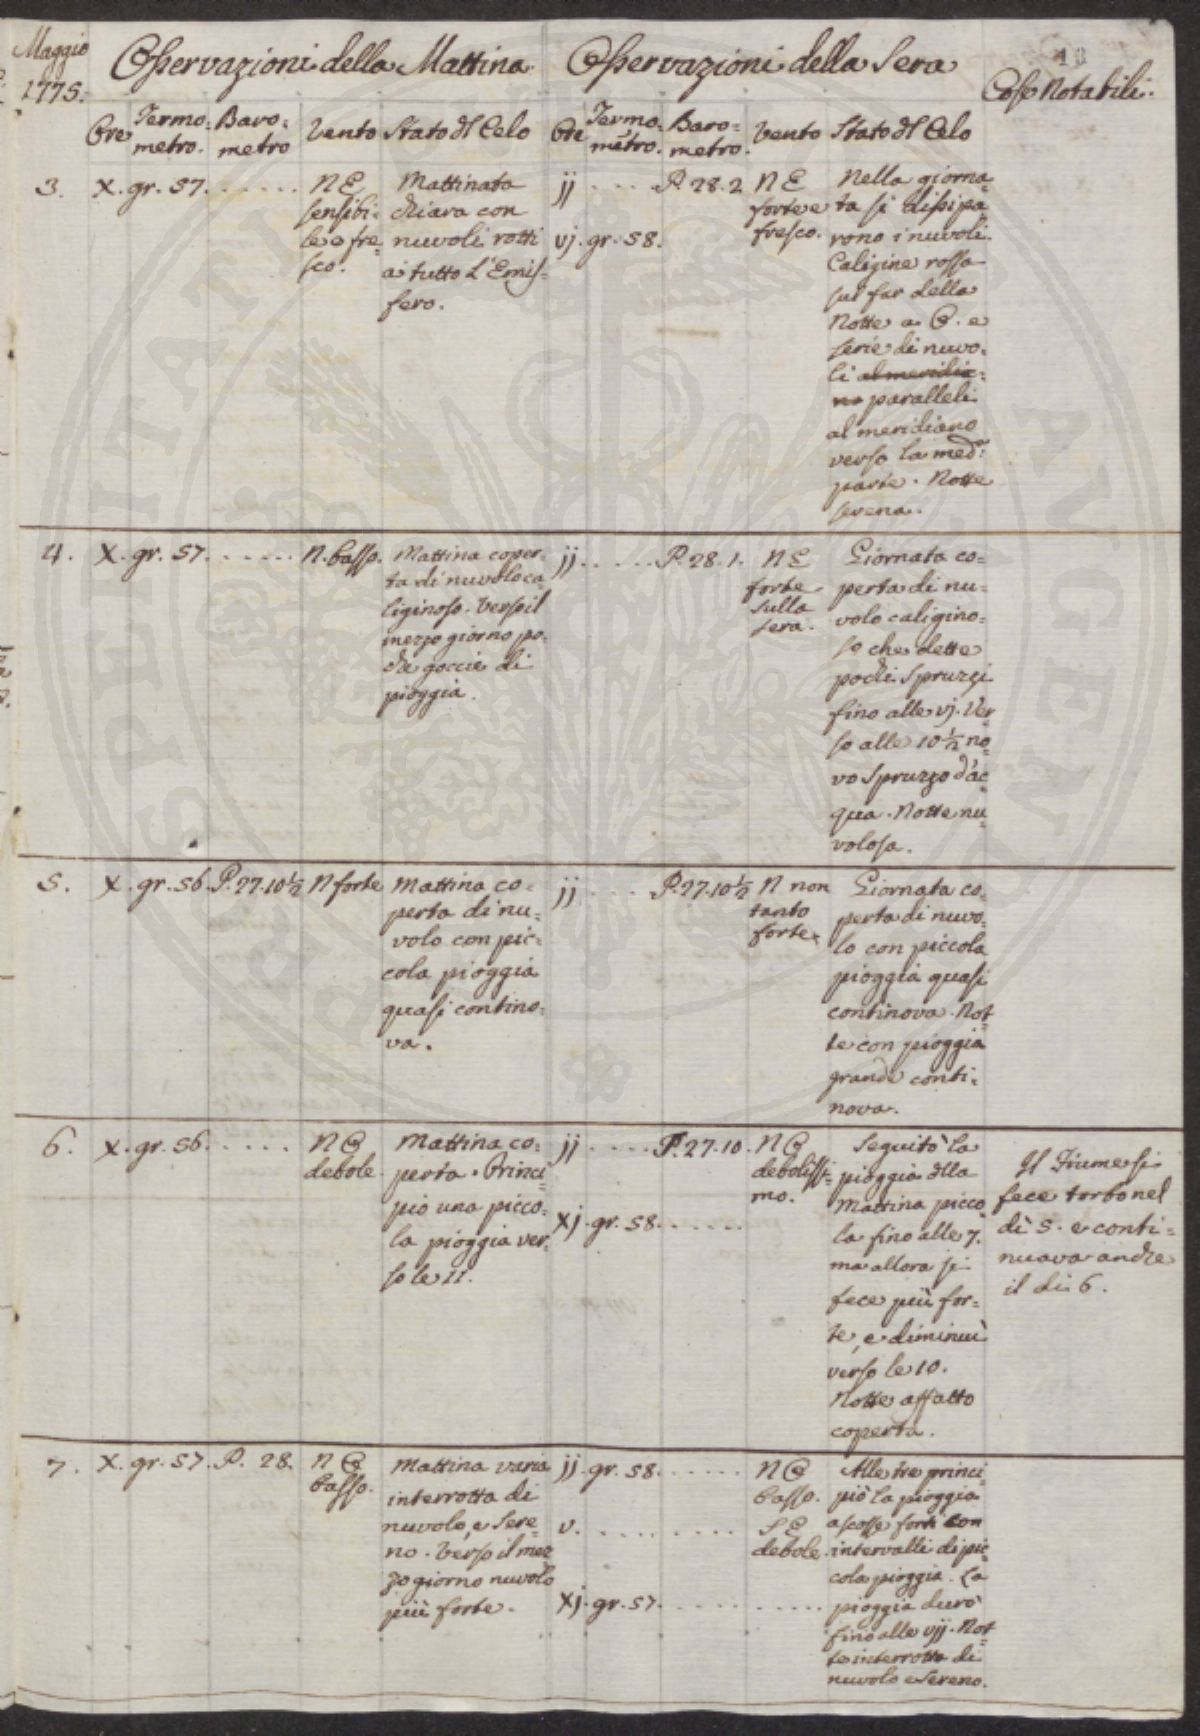 Maggio
1775.
Osservazioni della Mattina
Osservazioni della Sera
18
Cose Notabili.
Ore
Termo:
metro.
Baro:
metro
Vento
Stato dl Celo
Ore
Termo:
metro.
Baro=
metro.
Vento
Stato dl Celo
3.
X. gr. 57. . . . . . .
NE
sensibi:
le e fre
sco.
Mattinata
chiara con
nuvoli rotti
a tutto l'Emis=
fero.
jj . . . .
P. 28. 2
vj. gr. 58.
NE
forte e
fresco.
Nella giorna
ta si dissipa
rono i nuvoli.
Caligine rossa
sul far della
Notte a O. e
serie di nuvo.
li al meridia=
no paralleli
al meridiano
verso la med.a
parte. Notte
serena.
4.
X. gr. 57. . . . . . .
N. basso.
Mattina coper=
ta di nuvolo ca
liginoso. Verso il
mezzo giorno po.
che goccie di
pioggia.
jj . . . . .
P. 28. 1.
NE
forte
sulla
sera.
Giornata co=
perta di nu=
volo caligino=
so che dette
pochi spruzzi
fino alle vj. Ver
so alle 10 1/2 no
vo spruzzo d'ac
qua. Notte nu
volosa.
5.
X. gr. 56.
P. 27. 10 1/2
N forte
Mattina co=
perta di nu=
volo con pic=
cola pioggia
quasi contino:
va.
jj . . . .
P. 27. 10 1/2
N non
tanto
forte.
Giornata co
perta di nuvo:
lo con piccola
pioggia quasi
continova. Not
te con pioggia
grande conti=
nova.
6.
X. gr. 56. . . . .
NO
debole.
Mattina co:
perta. Princi
piò una picco:
la pioggia ver.
so le 11.
jj . . . .
P. 27. 10.
xj. gr. 58. . . . . .
NO
debolissi=
mo.
Seguitò la
pioggia dlla
Mattina picco
la fino alle 7.
ma allora si
fece più for=
te, e diminuì
verso le 10.
Notte affatto
coperta.
Il Fiume si
fece torbo nel
dì 5. e conti=
nuava anche
il dì 6.
7.
X. gr. 57.
P. 28.
NO
basso.
Mattina varia
interrotta di
nuvolo, e sere=
no. Verso il mez
zo giorno nuvolo
più forte.
jj. gr. 58. . . . . .
NO
basso.
v. . . . . . . . .
SE
debole.
xj. gr. 57. . . . . . . . . . .
Alle tre princi
piò la pioggia
a scosse forti con
intervalli di pic
cola pioggia. La
pioggia durò
fino alle vjj. Not
te interrotta di
nuvolo e sereno.